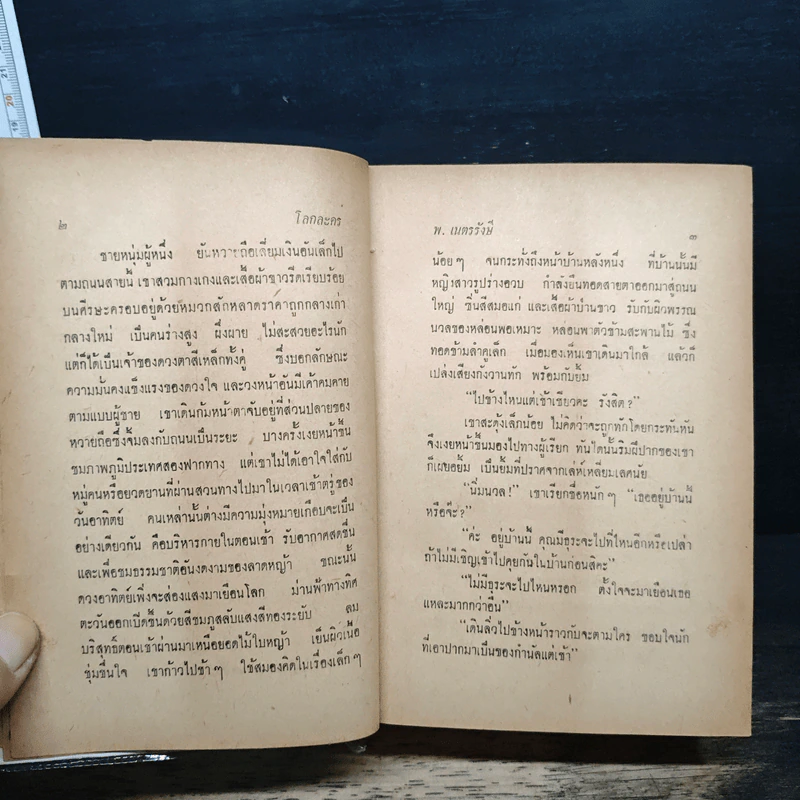 ๒ โลกละคร
ชายหนุ่มผู้หนึ่ง ยันหวายถือเลี่ยมเงินอันเล็กไป
ตามถนนสายนี้ เขาสวมกางเกงและเสื้อผ้าขาวรีดเรียบร้อย
บนศีรษะครอบอยู่ด้วยหมวกสักหลาดราคาถูกกลางเก่า
กลางใหม่ เป็นคนร่างสูง ผึ่งผาย ไม่สะสวยอะไรนัก
แต่ก็ได้เป็นเจ้าของดวงตาสีเหล็กทั้งคู่ ซึ่งบอกลักษณะ
ความมั่นคงแข็งแรงของดวงใจ และวงหน้าอันมีเค้าคมคาย
ตามแบบผู้ชาย เขาเดินก้มหน้าตาจับอยู่ที่ส่วนปลายของ
หวายถือซึ่งจิ้มลงกับถนนเป็นระยะ บางครั้งเงยหน้าขึ้น
ชมภาพภูมิประเทศสองฟากทาง แต่เขาไม่ได้เอาใจใส่กับ
หมู่คนหรือยวดยานที่ผ่านสวนทางไปมาในเวลาเช้าตรู่ของ
วันอาทิตย์ คนเหล่านั้นต่างมีความมุ่งหมายเกือบจะเป็น
อย่างเดียวกัน คือบริหารกายในตอนเช้า รับอากาศสดชื่น
และเพื่อชมธรรมชาติอันงดงามของลาดหญ้า ขณะนั้น
ดวงอาทิตย์เพิ่งจะส่องแสงมาเยือนโลก ม่านฟ้าทางทิศ
ตะวันออกเบิดขึ้นด้วยสีชมภูสลับแสงสีทองระยับ ลม
บริสุทธิ์ตอนเช้าผ่านมาเหนือยอดไม้ใบหญ้า เย็นผิวเนื้อ
ชุ่มชื่นใจ เขาก้าวไปช้า ๆ ใช้สมองคิดในเรื่องเล็ก ๆ
พ. เนตรรังษี ๓
น้อย ๆ จนกระทั่งถึงหน้าบ้านหลังหนึ่ง ที่บ้านนั้นมี
หญิงสาวรูปร่างอวบ กำลังยืนทอดสายตาออกมาสู่ถนน
ใหญ่ ซิ่นสีสมอแก่ และเสื้อผ้าป่านขาว รับกับผิวพรรณ
นวลของหล่อนพอเหมาะ หล่อนพาตัวข้ามสะพานไม้ ซึ่ง
ทอดข้ามลำคูเล็ก เมื่อมองเห็นเขาเดินมาใกล้ แล้วก็
เปล่งเสียงกังวานทัก พร้อมกับยิ้ม
“ไปข้างไหนแต่เช้าเชียวคะ รังสิต?”
เขาสะดุ้งเล็กน้อย ไม่คิดว่าจะถูกทักโดยกระทันหัน
จึงเงยหน้าขึ้นมองไปทางผู้เรียก ทันใดนั้นริมฝีปากของเขา
ก็เผยอยิ้ม เป็นยิ้มที่ปราศจากเล่ห์เหลี่ยมเลศนัย
“นิ่มนวล!” เขาเรียกชื่อหนัก ๆ “เธออยู่บ้านนี้
หรือจ๊ะ?”
“ค่ะ อยู่บ้านนี้ คุณมีธุระจะไปที่ไหนอีกหรือเปล่า
ถ้าไม่มีเชิญเข้าไปคุยกันในบ้านก่อนสิคะ”
“ไม่มีธุระจะไปไหนหรอก ตั้งใจจะมาเยือนเธอ
แหละมากกว่าอื่น”
“เดินลิ่วไปข้างหน้าราวกับจะตามใคร ขอบใจนัก
ที่เอาปากมาเป็นของกำนัลแต่เช้า”